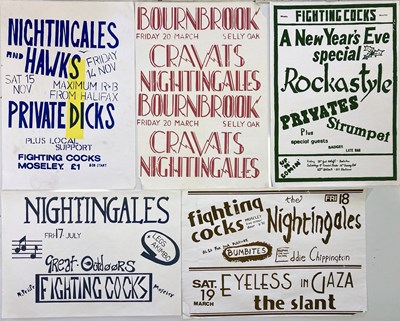 NIGHTINGALES
AND
HAWKS
FRIDAY
14 NOV
SAT 15
NOV
MAXIMUM R+B
FROM HALIFAX
PRIVATE DICKS
PLUS LOCAL
SUPPORT
FIGHTING COCKS
MOSELEY. £1
BOURNBROOK
FRIDAY 20 MARCH SELLY OAK
CRAVATS
NIGHTINGALES
BOURNBROOK
FRIDAY 20 MARCH SELLY OAK
CRAVATS
NIGHTINGALES
FIGHTING COCKS
A New Year's Eve
special
Rockastyle
PRIVATES
Plus
Strumpet
special guests
BADGES
LATE BAR
UP AND
COMIN
NIGHTINGALES
FRI 17 JULY
LEGS
AKIMBO
great Outdoors
FIGHTING COCKS
Moseley
fighting
cocks
MOSELEY
the
Nightingales
FRI 18
BUMBITES
Eddie Chippington
SAT. 19
MARCH
EYELESS IN GAZA
the slant